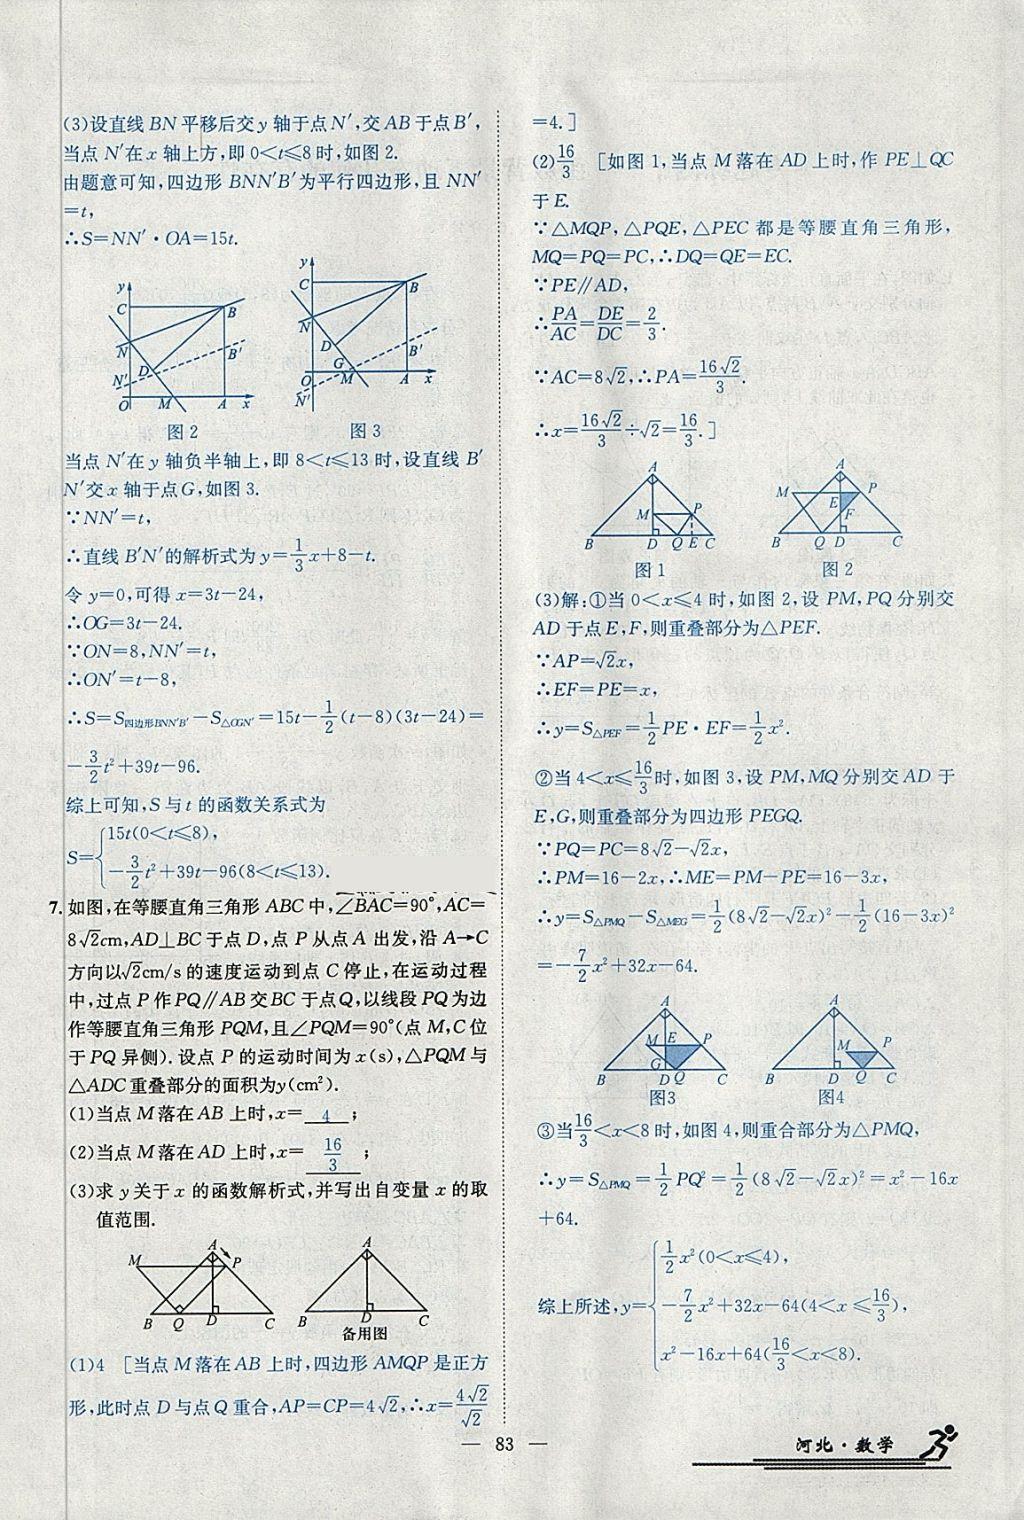 (3)设直线BN平移后交y轴于点N′,交AB于点B′,
当点N′在x轴上方,即0<t≤8时,如图2.
由题意可知,四边形BNN′B′为平行四边形,且NN′
=t,
∴S=NN′·OA=15t.
y C B N D B′ N′ O M A x
图2
y C B N D G B′ O M A x N′
图3
当点N′在y轴负半轴上,即8<t≤13时,设直线B′
N′交x轴于点G,如图3.
∵NN′=t,
∴直线B′N′的解析式为y=1/3x+8-t.
令y=0,可得x=3t-24,
∴OG=3t-24.
∵ON=8,NN′=t,
∴ON′=t-8,
∴S=S四边形BNN′B′-S△OGN′=15t-1/2(t-8)(3t-24)=
-3/2t²+39t-96.
综上可知,S与t的函数关系式为
S={15t(0<t≤8),
-3/2t²+39t-96(8<t≤13).
7.如图,在等腰直角三角形ABC中,∠BAC=90°,AC=
8√2cm,AD⊥BC于点D,点P从点A出发,沿A→C
方向以√2cm/s的速度运动到点C停止,在运动过程
中,过点P作PQ∥AB交BC于点Q,以线段PQ为边
作等腰直角三角形PQM,且∠PQM=90°(点M,C位
于PQ异侧).设点P的运动时间为x(s),△PQM与
△ADC重叠部分的面积为y(cm²).
(1)当点M落在AB上时,x=4;
(2)当点M落在AD上时,x=16/3;
(3)求y关于x的函数解析式,并写出自变量x的取
值范围.
M A P B Q D C
A B D C
备用图
(1)4 [当点M落在AB上时,四边形AMQP是正方
形,此时点D与点Q重合,AP=CP=4√2,∴x=4√2/√2
=4.]
(2)16/3 [如图1,当点M落在AD上时,作PE⊥QC
于E.
∵△MQP,△PQE,△PEC都是等腰直角三角形,
MQ=PQ=PC,∴DQ=QE=EC.
∵PE∥AD,
∴PA/AC=DE/DC=2/3.
∵AC=8√2,∴PA=16√2/3.
∴x=16√2/3÷√2=16/3.]
A M P B D Q E C
图1
A M P E F B Q D C
图2
(3)解:①当0<x≤4时,如图2,设PM,PQ分别交
AD于点E,F,则重叠部分为△PEF.
∵AP=√2x,
∴EF=PE=x,
∴y=S△PEF=1/2PE·EF=1/2x².
②当4<x≤16/3时,如图3,设PM,MQ分别交AD于
E,G,则重叠部分为四边形PEGQ.
∵PQ=PC=8√2-√2x,
∴PM=16-2x,∴ME=PM-PE=16-3x,
∴y=S△PMQ-S△MEG=1/2(8√2-√2x)²-1/2(16-3x)²
=-7/2x²+32x-64.
A M E P G B D Q C
图3
A M P B D Q C
图4
③当16/3<x<8时,如图4,则重合部分为△PMQ,
∴y=S△PMQ=1/2PQ²=1/2(8√2-√2x)²=x²-16x
+64.
综上所述,y={1/2x²(0<x≤4),
-7/2x²+32x-64(4<x≤16/3),
x²-16x+64(16/3<x<8).
— 83 —
河北·数学